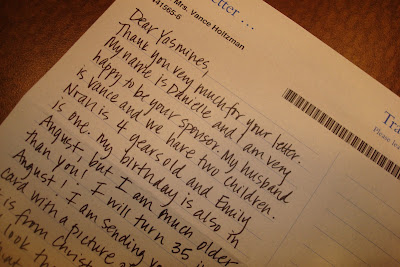 etter ...
Mrs. Vance Holtzman
41565-6
Dear Yasmines,
Thank you very much for your letter.
My name is Danielle and I am very
happy to be your sponsor. My husband
is Vance and we have two children.
Noah is 4 years old and Emily
is one. My birthday is also in
August, but I am much older
than you! I will turn 35 in
August! I am sending yo
card with a picture
is from Christ
look th
Tra
Please lea